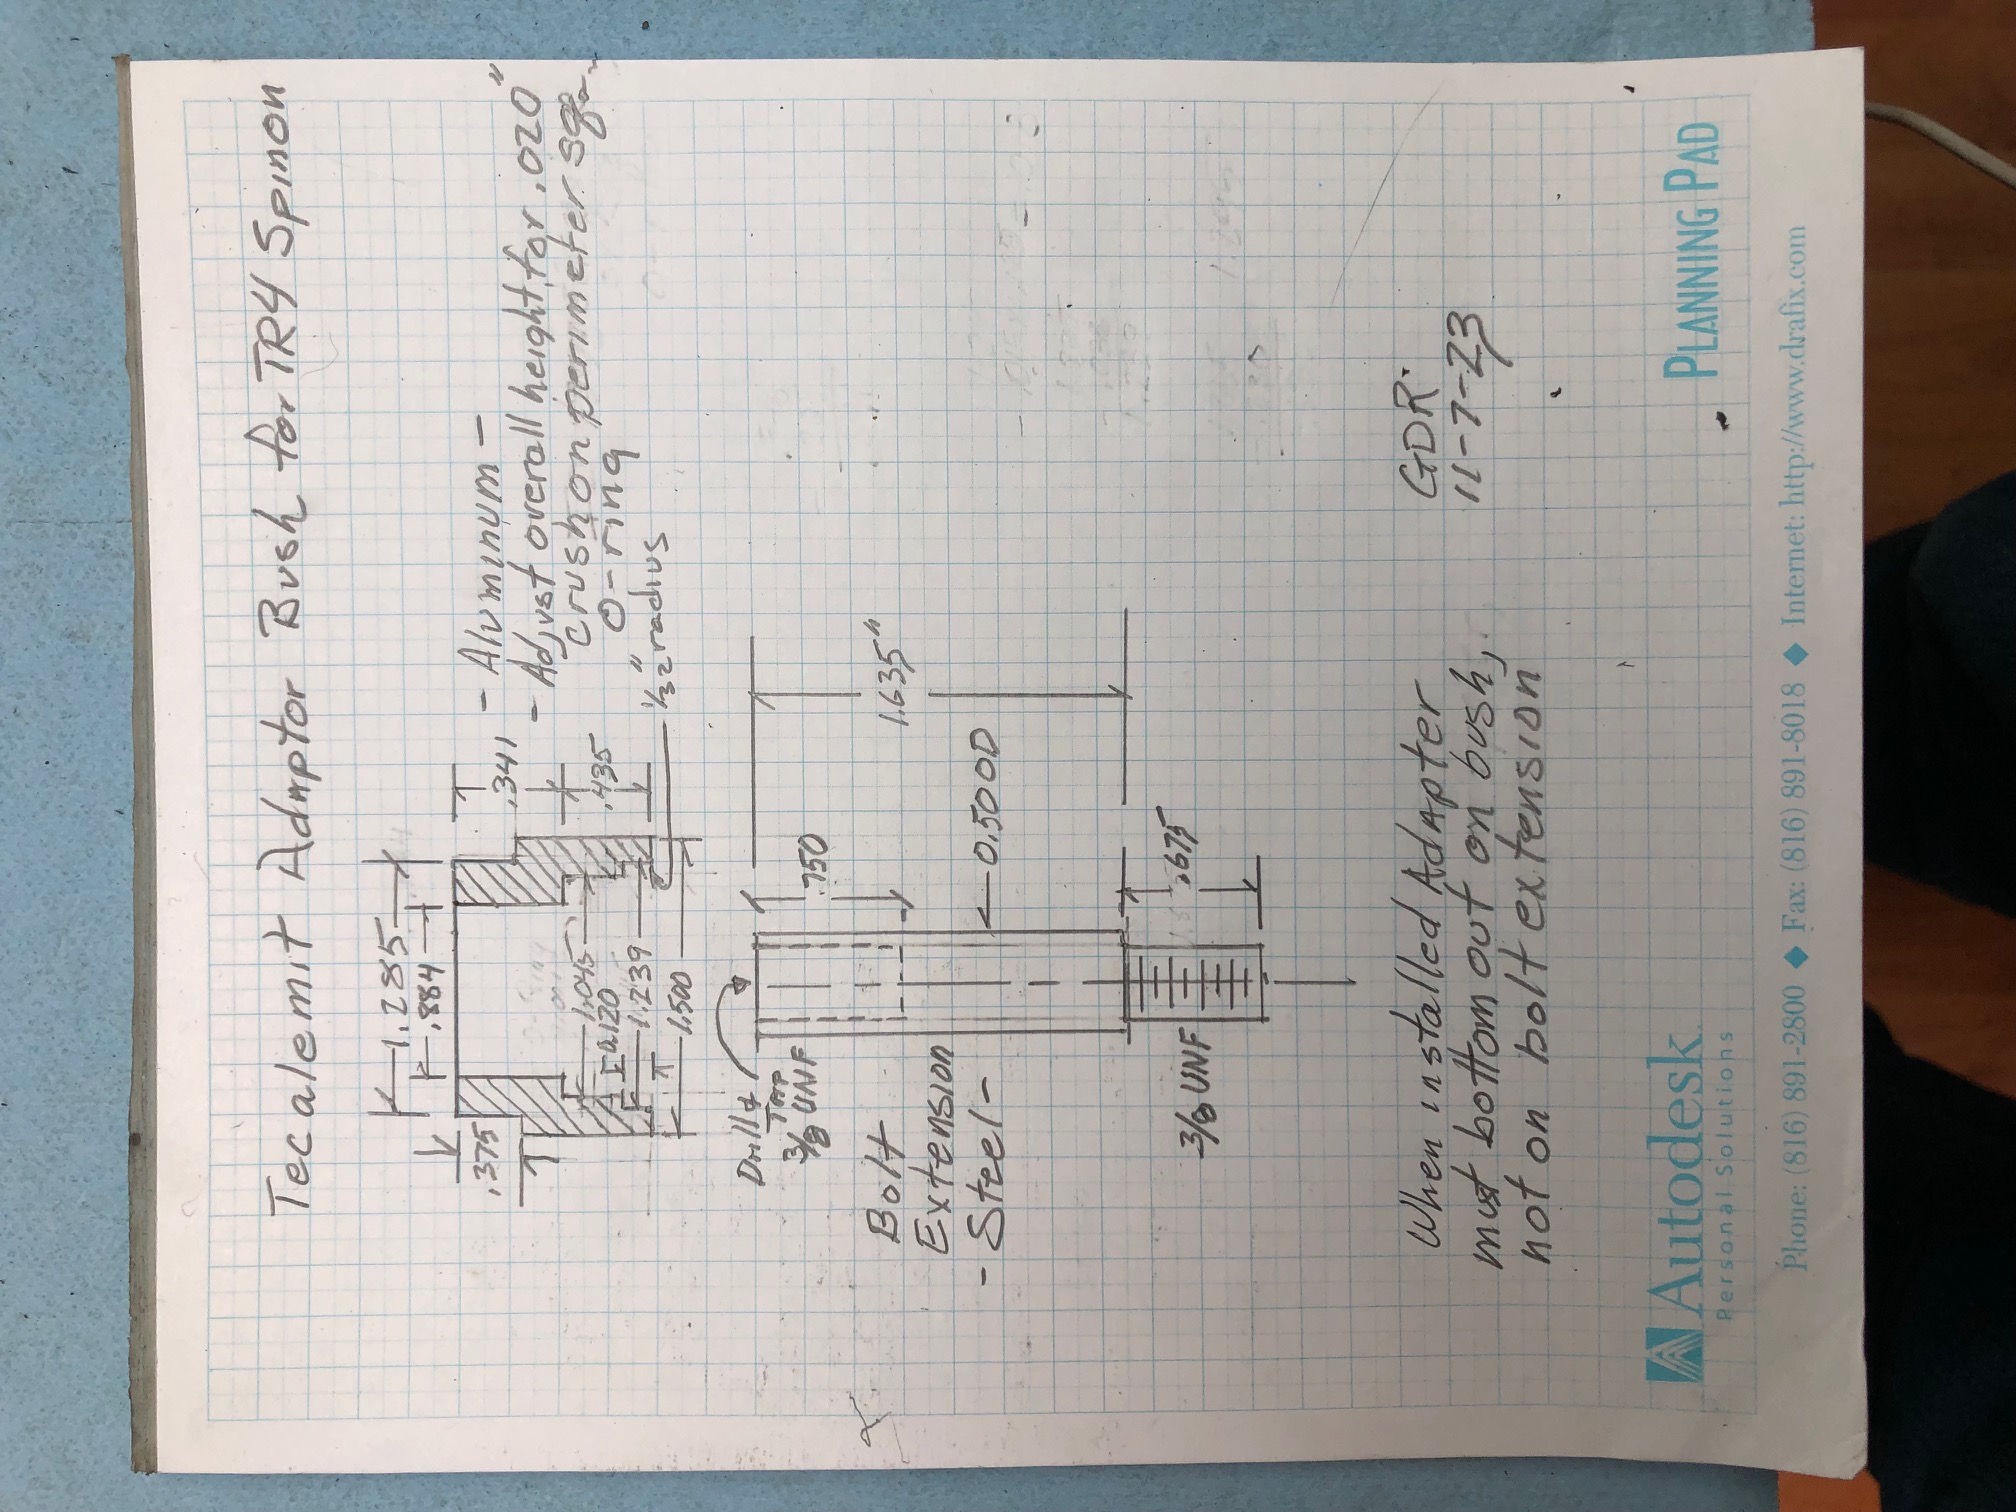 Tecalemit Adaptor Bush for TR4 Spinon
1.285
.884
.375
.341
- Aluminum -
- Adjust overall height for .020"
crush on perimeter sqar
O-ring
.435
1/32" radius
1.045
0.120
1.239
1.500
Drill &
Tap
3/8 UNF
.750
1.635"
Bolt
Extension
- Steel -
0.500D
.675
3/8 UNF
When installed Adapter
must bottom out on bush,
not on bolt extension
GDR
11-7-23
Autodesk
Personal Solutions
PLANNING PAD
Phone: (816) 891-2800 ◆ Fax: (816) 891-8018 ◆ Internet: http://www.drafix.com